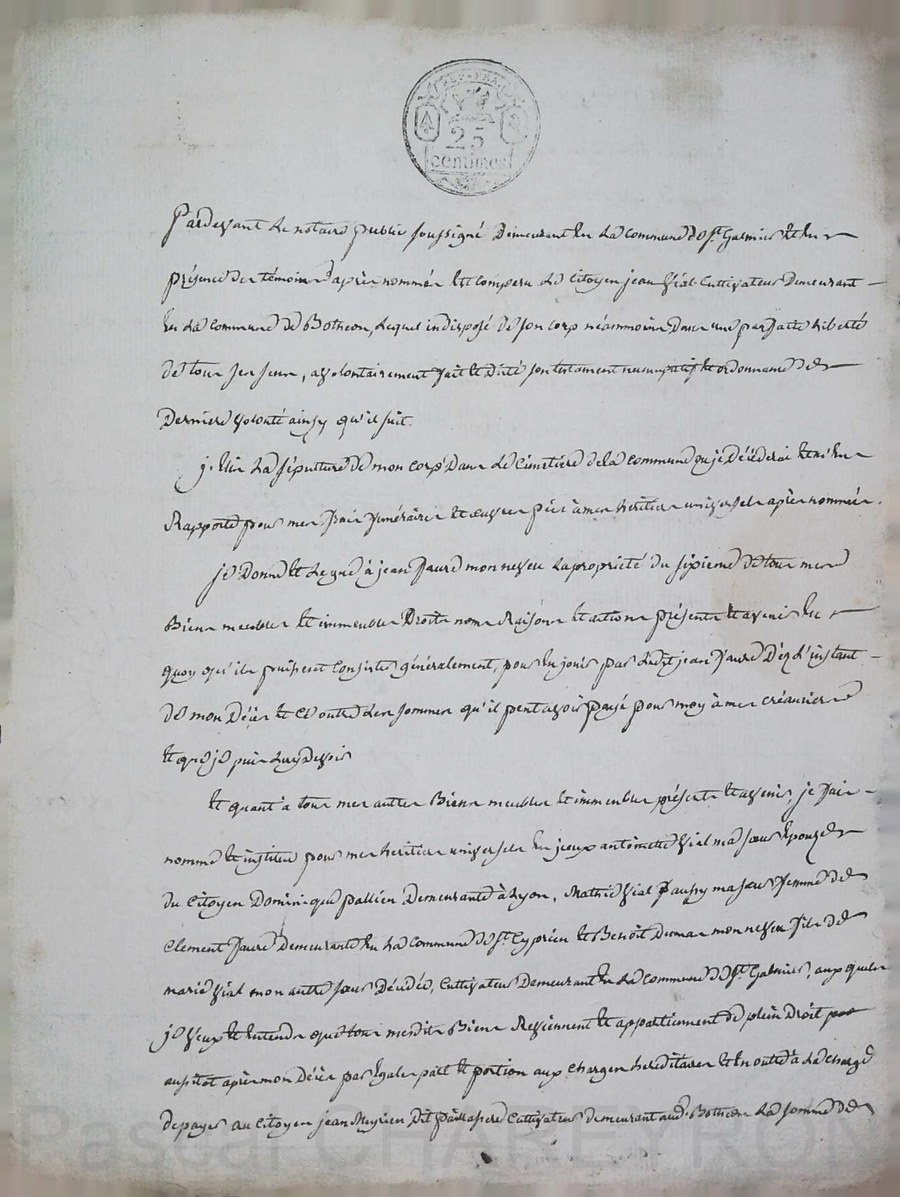 REP. FRA.
25
centimes
Pardevant Le notaire public soussigné Demeurant En La commune De St. Galmier Et En
présence des témoins d'après nommés Est comparu Le Citoyen jean Vial Cultivateur Demeurant
En La Commune De Botheon, Lequel indisposé De son corp néammoins Dans une parfaite Liberté
De tous ses sens, a volontairement fait Et Dicté son testament nuncupatif Et ordonnance De
Derniere volonté ainsy qu'il suit.
j'Elis La sépulture De mon corp Dans Le Cimetière de la commune ou je Décéderai Et m'En
Rapporte pour mes frais funéraires Et œuvres pies à mes heritiers universels après nommés.
je Donne Et Legue à jean faure mon neveu La propriété Du sixieme De tous mes
Biens meubles Et immeubles Droits noms Raisons Et actions présents Et avenir En
quoy qu'ils puissent Consister généralement, pour En jouir par Ledit jean faure Dèz L'instant
De mon Décès Et Ce outre Les sommes qu'il peut avoir payé pour moy à mes créanciers
Et que je puis Luy Devoir
Et quant a tous mes autres Biens meubles Et immeubles présents Et avenir, je fais
nomme Et institue pour mes heritiers universels En jeux antoinette Vial ma sœur Epouze
Du Citoyen Dominique pallien Demeurante à Lyon, Mathie Vial faussy ma sœur femme De
Clement faure Demeurante En La Commune De St. Cyprien Et Benoît Dumas mon neveu fils De
marie Vial mon autre sœur Décédée, Cultivateur Demeurant En La Commune De St. Galmier, aux quels
je Veux Et Entends que tous mesdits Biens Reviennent Et appartiennent De plein Droit
aussitot après mon Décès par Egales part Et portion aux charges héréditaires Et En outre à La charge
De payer au Citoyen jean Meyrieu Dit paillassere Cultivateur Demeurant aud. Botheon La somme De
Pascal CHAREYRON